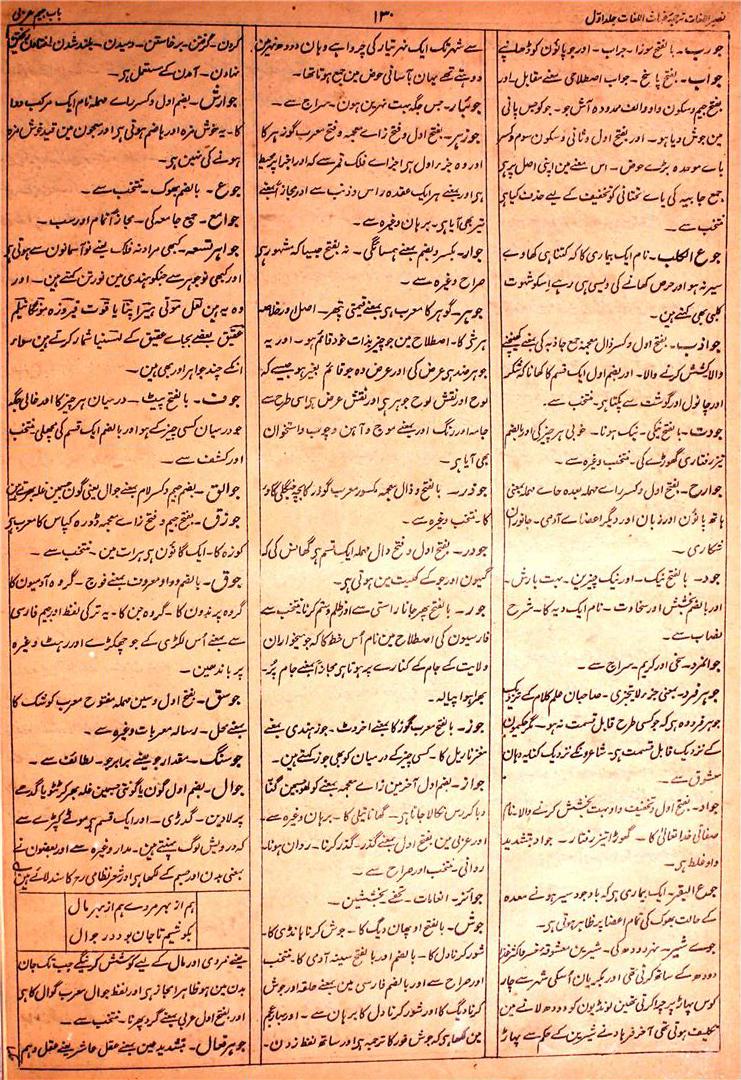 نصیر اللغات ترجمۂ غیاث اللغات جلد اول
۱۳۰
باب جیم عربی
جورب۔ بالفتح موزا۔ جراب۔ اور جو پائون کو ڈھانپے
جواب۔ بفتح پاسخ۔ جواب اصطلاحی معنے مقابل۔ اور
بفتح جیم و سکون واو والف ممدودہ آش جو۔ جو کو جس پانی
مین جوش دیا ہو۔ اور بفتح اول و ثانی و سکون سوم و کسر
باے موحدہ بڑے حوض۔ اس معنے مین اپنی اصل پر ہی
جمع جابیہ کی یاے تحتانی کو تخفیف کے لیے حذف کیا ہی
منتخب سے۔
جوع الکلب۔ نام ایک بیماری کا کہ کتنا ہی کھاوے
سیر نہ ہو اور حرص کھانے کی ویسی ہی رہے اسکو شہوت
کلبی بھی کہتے ہین۔
جواذب۔ بفتح اول و کسر ذال معجمہ جمع جاذبہ کی بمعنے کھینچنے
والا کشش کرنے والا۔ اور بضم اول ایک قسم کا کھانا کہ شکر
اور چانول اور گوشت سے پکتا ہی۔ منتخب سے۔
جودت۔ بالفتح نیکی۔ نیک ہونا۔ خوبی ہر چیز کی اور بالضم
تیز رفتاری گھوڑے کی۔ منتخب وغیرہ سے۔
جوارح۔ بفتح اول و کسر راے مہملہ بعدہ حاے مہملہ یعنی
ہاتھ پائون اور زبان اور دیگر اعضاے آدمی۔ جانوران
شکاری۔
جود۔ بالفتح نیک۔ اور نیک چیزین۔ بہت بارش۔
اور بالضم بخشش اور سخاوت۔ نام ایک دیہ کا۔ شرح
نصاب سے۔
جوانمرد۔ سخی اور کریم۔ سراج سے۔
جوہر فرد۔ بمعنی جزو لایتجزی۔ صاحبان علم کلام کے نزدیک
جوہر فرد وہ ہی کہ جو کسی طرح قابل قسمت نہو۔ مگر حکیمون
کے نزدیک قابل قسمت ہی۔ شاعرونکے نزدیک کنایہ دہان
معشوق سے۔
جواد۔ بفتح اول و تخفیف واو بہت بخشش کرنے والا۔ نام
صفاتی خدا تعالیٰ کا۔ گھوڑا تیز رفتار۔ جواد بتشدید
واو غلط ہی۔
جوع البقر۔ ایک بیماری ہی کہ باوجود سیر ہونے معدہ
کے حالت بھوک کی تمام اعضا پر ظاہر ہوتی ہی۔
جوے شیر۔ نہر دودھ کی۔ شیرین معشوقہ خسرو اکثر غذا
دودھ کے ساتھ کرتی تھی اور بکریان اسکی شہر سے چار
کوس پہاڑ پر چرا کرتی تھین لونڈیون کو دودھ لانے مین
تکلیف ہوتی تھی آخر فرہاد نے شیرین کے حکم سے پہاڑ
سے شہر تک ایک نہر تیار کی چرواہے وہان دودھ نہر مین
دوہتے تھے یہان بآسانی حوض مین جمع ہوتا تھا۔
جوئبار۔ جس جگہ بہت نہرین ہون۔ سراج سے۔
جوزہر۔ بفتح اول و فتح زاے معجمہ و فتح معرب گوزہر کا
اور وہ جزو اول ہی اجزاے فلک قمر سے کہ اور اجزا پر محیط
ہی اور بمعنے ہر ایک عقدہ راس و ذنب سے اور مجازاً بمعنے
تیر بھی آیا ہی۔ برہان وغیرہ سے۔
جوار۔ بکسر و بضم بمعنے ہمسائگی۔ نہ بفتح جیسا کہ مشہور ہی
صراح وغیرہ سے۔
جوہر۔ گوہر کا معرب ہی بمعنے قیمتی پتھر۔ اصل اور خلاصہ
ہر شی کا۔ اصطلاح مین جو چیز بذات خود قائم ہو۔ اور یہ
جوہر ضد ہی عرض کی اور عرض وہ جو قائم بغیر ہو جیسے کہ
لوح اور نقش لوح جوہر ہی اور نقش عرض ہی اسی طرح سے
جامہ اور رنگ اور بمعنے موج و آہن و چوب و استخوان
بھی آیا ہی۔
جوذر۔ بالفتح و ذال معجمہ مکسور معرب گوذر کا بچہ جنگلی گاؤ
کا۔ منتخب وغیرہ سے۔
جودر۔ بفتح اول و فتح دال مہملہ ایک قسم ہی گھانس کی کہ
گیہون اور جو کے کھیت مین ہوتی ہی۔
جور۔ بالفتح پھر جانا راستی سے اور ظلم و ستم کرنا منتخب سے
فارسیون کی اصطلاح مین نام اس خط کا کہ جو میخواران
ولایت کے جام کے کنارے پر ہوتا ہی مجازاً بمعنے جام پر۔
بھرا ہوا پیالہ۔
جوز۔ بالفتح معرب گوز کا بمعنے اخروٹ۔ جوز ہندی بمعنے
مغز ناریل کا۔ کسی چیز کے درمیان کو بھی جوز کہتے ہین۔
جواز۔ بضم اول آخر مین زاے معجمہ بمعنے کولہو جسمین گنا
دبا کر رس نکالا جاتا ہی۔ گھانا تیل کا۔ برہان وغیرہ سے۔
اور عربی مین بفتح اول بمعنے گذر۔ گذر کرنا۔ روان ہونا۔
روانی۔ منتخب اور صراح سے۔
جوائز۔ انعامات۔ تحفے۔ بخششین۔
جوش۔ بالفتح اوبھان دیگ کا۔ جوش کرنا ہانڈی کا۔
شور کرنا دل کا۔ بالضم اور بالفتح سینہ آدمی کا۔ منتخب
اور صراح سے اور بالضم فارسی مین بمعنے حلقہ اور جوش
کرنا دیگ کا اور شور کرنا دل کا برہان سے۔ اور بہار عجم
مین لکھا ہی کہ جوش فور کا ترجمہ ہی اور ساتھ لفظ زدن۔
کردن۔ گرفتن۔ برخاستن۔ دمیدن۔ بلند شدن۔ افتادن۔ ریختن
نہادن۔ آمدن کے مستعمل ہی۔
جوارش۔ بضم اول و کسر راے مہملہ نام ایک مرکب دوا
کا۔ یہ خوش مزہ اور ہاضم ہوتی ہی اور معجون مین قید خوش مزہ
ہونے کی نہین ہی۔
جوع۔ بالضم بھوک۔ منتخب سے۔
جوامع۔ جمع جامعہ کی۔ مجازاً تمام اور سب۔
جواہر تسعہ۔ کبھی مراد نہ فلک یعنے نو آسمانون سے ہوتی ہی
اور کبھی نو جوہر سے جنکو ہندی مین نورتن کہتے ہین۔ اور
وہ یہ ہین لعل موتی ہیرا پنا یاقوت فیروزہ مونگا نیلم
عقیق بعضے بجاے عقیق کے لہسنیا شمار کرتے ہین سواے
انکے چند جواہر اور بھی ہین۔
جوف۔ بالفتح پیٹ۔ درمیان ہر چیز کا اور خالی جگہ
جو درمیان کسی چیز کے ہو اور بالضم ایک قسم کی مچھلی منتخب
اور کشف سے۔
جوالق۔ بضم جیم و کسر لام بمعنے جوال یعنی گون جسمین غلہ بھرتے ہین
جوزق۔ بفتح جیم و فتح زاے معجمہ ڈوڈہ کپاس کا معرب ہی
کوزہ کا۔ ایک گانون ہی ہرات مین۔ منتخب سے۔
جوق۔ بالضم و واو معروف بمعنے فوج۔ گروہ آدمیون کا
گروہ پرندون کا۔ گروہ جن کا۔ یہ ترکی لفظ اور جیم فارسی
سے بمعنے اس لکڑی کے جو چھکڑے اور رہٹ وغیرہ
پر باندھین۔
جوسق۔ بفتح اول و سین مہملہ مفتوح معرب کوشک کا
بمعنے محل۔ رسالہ معربات وغیرہ سے۔
جوسنگ۔ مقدار جو بمعنے برابر جو۔ لطائف سے۔
جوال۔ بضم اول گون یا گونی جسمین غلہ بھر کر ٹٹو یا گدھے
پر لادین۔ گدڑی۔ اور ایک قسم ہی موٹے کپڑے سے
کہ درویش لوگ پہنتے ہین۔ مدار وغیرہ سے اور بعضون نے
بمعنی بدن اور جسم کے لکھا ہی اور شعر نظامی رح کا سند لائے ہین
ہم از بہر مردے ہم از بہر مال
بکوشیم تا جان بود در جوال
یعنے مردی اور مال کے لیے کوشش کرینگے جب تک جان
بدن مین ہو ظاہرا مجاز ہی اور لفظ جوال معرب گوال کا ہی
اور بفتح اول عربی بمعنے گرد پھرنا۔ منتخب سے۔
جوہر فعال۔ بتشدید عین بمعنے عقل عاشر یعنے عقل دہم